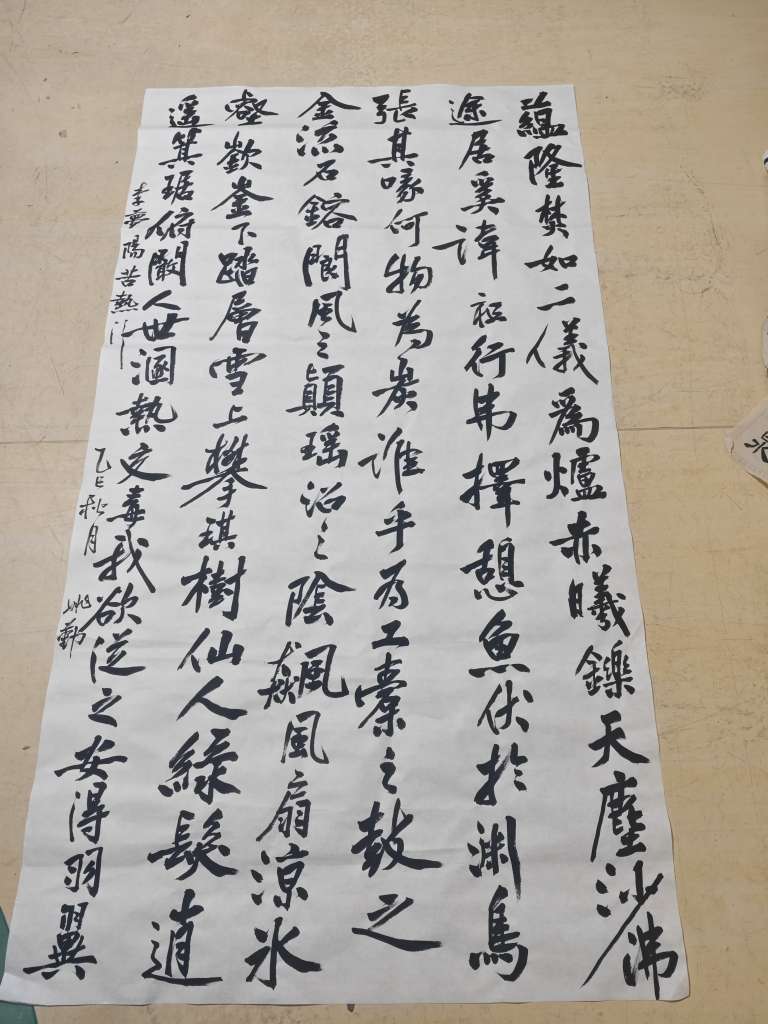 蘊隆焚如二儀爲爐赤曦鑠天塵沙沸
途居奚諱裎行弗擇憩魚伏於淵鳥
張其喙何物為炭誰乎为工橐之鼓之
金流石鎔閬風之顛瑶沼之陰飆風扇涼冰
壑欹崟下踏層雪上攀琪樹仙人綠髮逍
遥箕踞俯闞人世涵熱之毒我欲從之安得羽翼
李夢陽苦熱行
乙巳秋月
姚